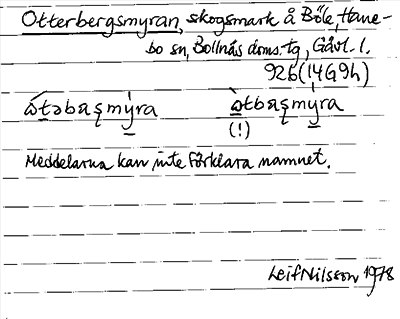 Otterbergsmyran, skogsmark å Böle, Hane-
bo sn, Bollnäs doms.tg, Gävl. l.
926 (14G9h)
ẁtəbaʂmýra ẁtbaʂmýra
(!)
Meddelarna kan inte förklara namnet.
Leif Nilsson 1978